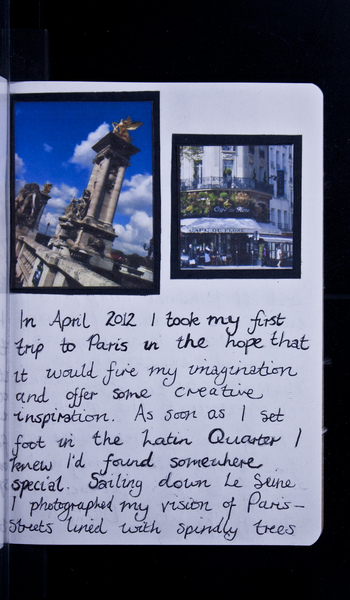 Café de Flore
In April 2012 I took my first
trip to Paris in the hope that
it would fire my imagination
and offer some creative
inspiration. As soon as I set
foot in the Latin Quarter I
knew I'd found somewhere
special. Sailing down Le Seine
I photographed my vision of Paris-
streets lined with spindly trees